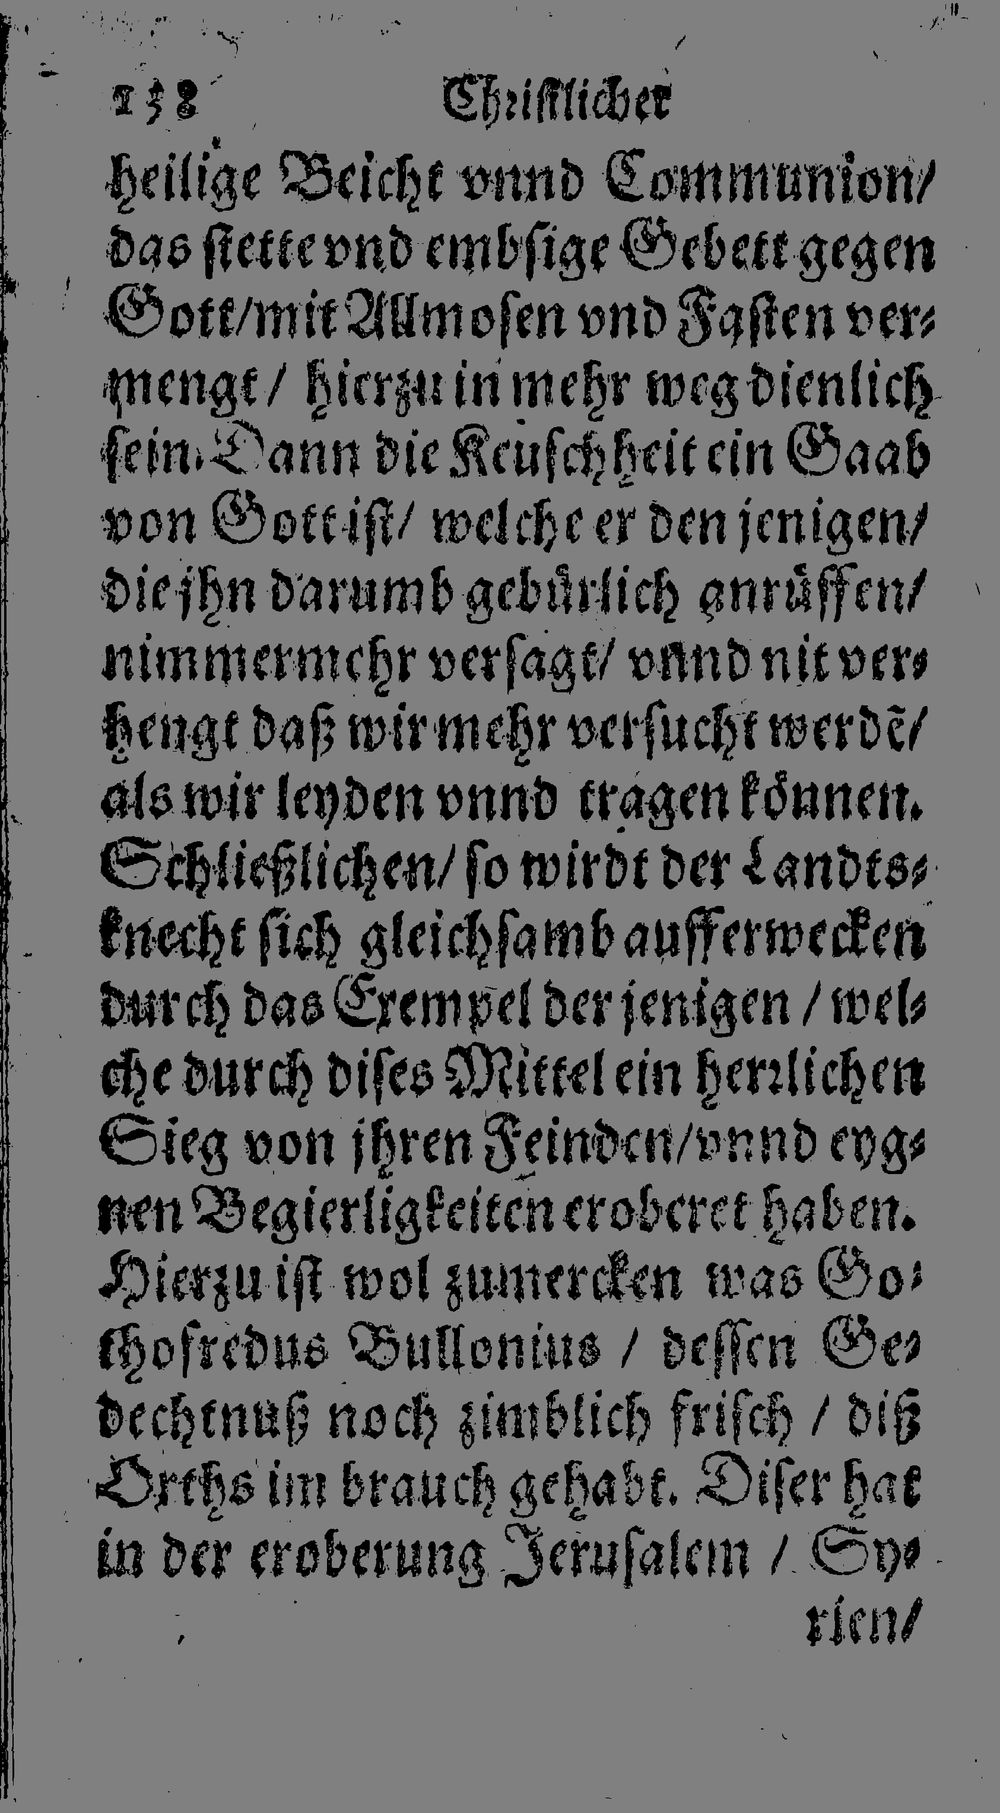 158 Christlicher
heilige Beicht vnnd Communion/
das stette vnd embsige Gebett gegen
Gott/mit Allmosen vnd Fasten ver-
mengt/ hierzu in mehr weg dienlich
sein. Dann die Keuschheit ein Gaab
von Gott ist/ welche er den jenigen/
die jhn darumb gebürlich anrüffen/
nimmermehr versagt/ vnnd nit ver-
hengt daß wir mehr versucht werdẽ/
als wir leyden vnnd tragen können.
Schließlichen/ so wirdt der Landts-
knecht sich gleichsamb aufferwecken
durch das Exempel der jenigen / wel-
che durch dises Mittel ein herrlichen
Sieg von jhren Feinden/vnnd eyg-
nen Begierligkeiten eroberet haben.
Hierzu ist wol zumercken was Go-
thofredus Bullonius / dessen Ge-
dechtnuß noch zimblich frisch / diß
Orths im brauch gehabt. Diser hat
in der eroberung Jerusalem / Sy-
rien/